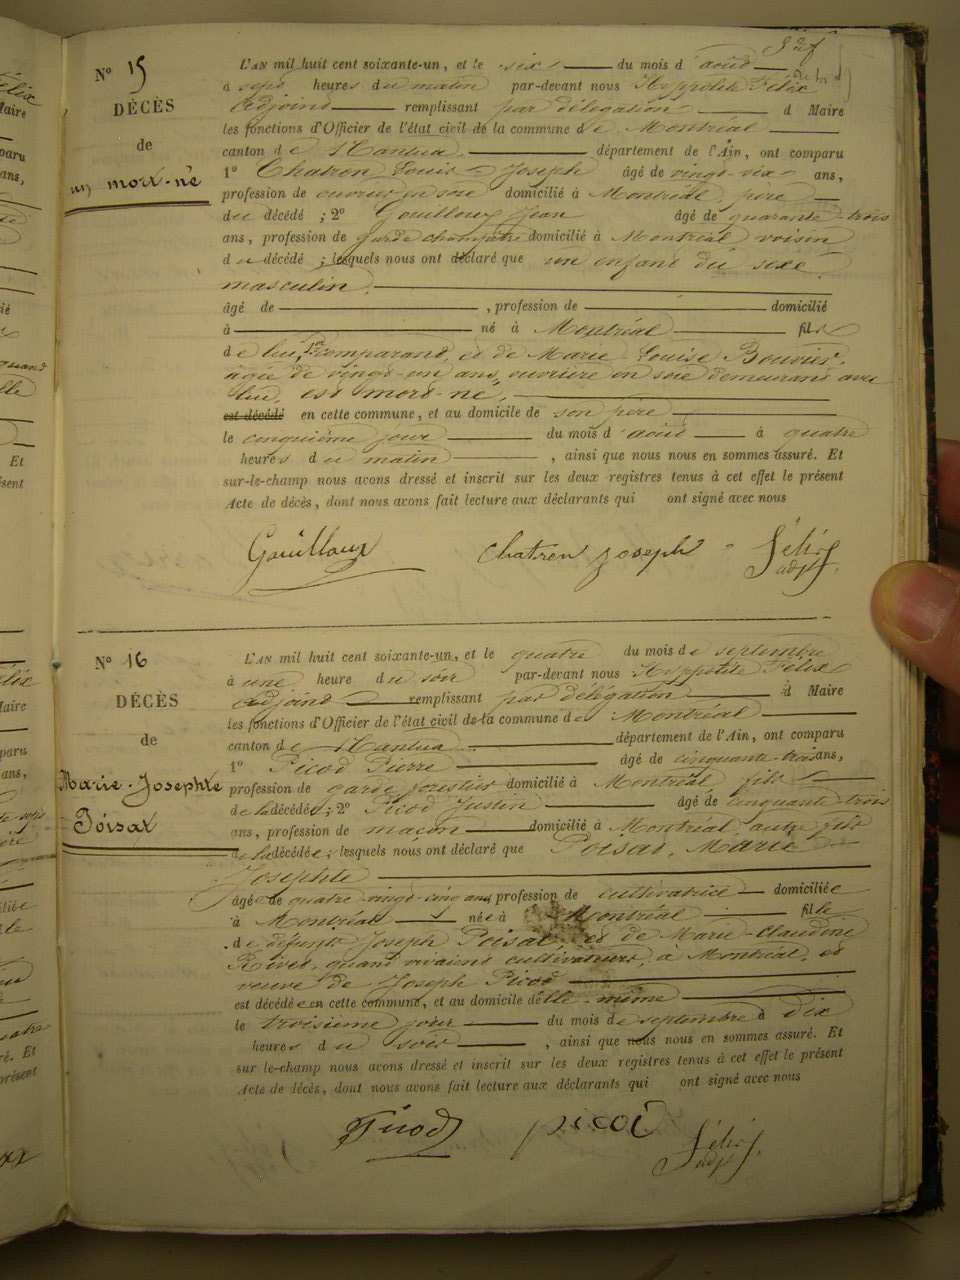 Nº 15
DÉCÈS
de
un mort-né
L'AN mil huit cent soixante-un, et le six du mois d'août
à sept heures du matin par-devant nous Hyppolite Félix
Adjoint remplissant par délégation d Maire
les fonctions d'Officier de l'état civil de la commune de Montréal
canton de Nantua département de l'Ain, ont comparu
1º Chatron Louis Joseph âgé de vingt-six ans,
profession de ouvrier en soie domicilié à Montréal père
du décédé ; 2º Gouilloux Jean âgé de quarante-trois
ans, profession de garde champêtre domicilié à Montréal voisin
du décédé ; lesquels nous ont déclaré que un enfant du sexe
masculin
âgé de , profession de domicilié
à né à Montréal fils
de lui, 1er comparant, et de Marie Louise Bouvier,
âgée de vingt-un ans, ouvrière en soie demeurant avec
lui, est mort-né,
est décédé en cette commune, et au domicile de son père
le cinquième jour du mois d'août à quatre
heures du matin , ainsi que nous nous en sommes assuré. Et
sur-le-champ nous avons dressé et inscrit sur les deux registres tenus à cet effet le présent
Acte de décès, dont nous avons fait lecture aux déclarants qui ont signé avec nous
Gouilloux Chatron Joseph Félix
adj.
Nº 16
DÉCÈS
de
Marie-Josephte
Poisat
L'AN mil huit cent soixante-un, et le quatre du mois de septembre
à une heure du soir par-devant nous Hyppolite Félix
Adjoint remplissant par délégation d Maire
les fonctions d'Officier de l'état civil de la commune de Montréal
canton de Nantua département de l'Ain, ont comparu
1º Picod Pierre âgé de cinquante-trois ans,
profession de garde forestier domicilié à Montréal fils
de la décédée ; 2º Picod Justin âgé de cinquante-trois
ans, profession de maçon domicilié à Montréal autre fils
de la décédée ; lesquels nous ont déclaré que Poisat, Marie
Josephte
âgée de quatre-vingt-cinq ans, profession de cultivatrice domiciliée
à Montréal née à Montréal fille
de défunts Joseph Poisat et de Marie-Claudine
Rives, quand vivaient cultivateurs, à Montréal, et
veuve de Joseph Picod
est décédée en cette commune, et au domicile d'elle-même
le troisième jour du mois de septembre à dix
heures du soir , ainsi que nous nous en sommes assuré. Et
sur le-champ nous avons dressé et inscrit sur les deux registres tenus à cet effet le présent
Acte de décès, dont nous avons fait lecture aux déclarants qui ont signé avec nous
Picod picod Félix
adj.